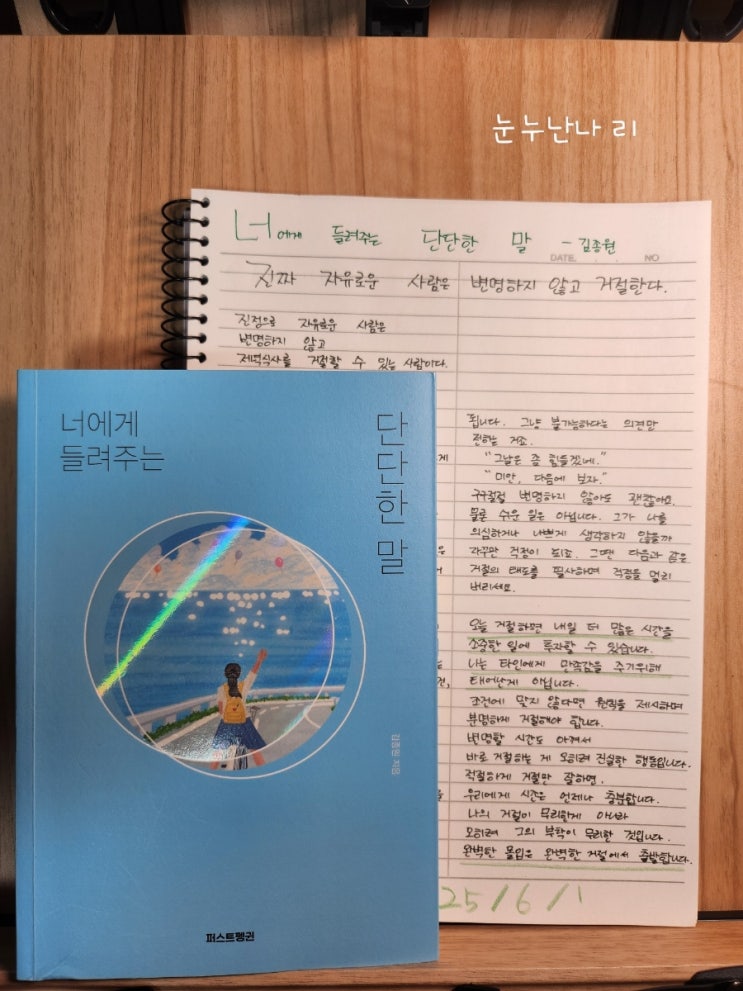 눈누난나 리
너에게 들려주는 단단한 말 - 김종원
DATE. . . NO
진짜 자유로운 사람은 변명하지 않고 거절한다.
진정으로 자유로운 사람은
변명하지 않고
저녁식사를 거절할 수 있는 사람이다.
됩니다. 그냥 불가능하다는 의견만
전하는 거죠.
"그날은 좀 힘들겠네."
"미안, 다음에 보자."
구구절절 변명하지 않아도 괜찮아요.
물론 쉬운 일은 아닙니다. 그가 나를
의심하거나 나쁘게 생각하지 않을까
자꾸만 걱정이 되죠. 그땐 다음과 같은
거절의 태도를 필사하며 걱정을 멀리
버리세요.
오늘 거절하면 내일 더 많은 시간을
소중한 일에 투자할 수 있습니다.
나는 타인에게 만족감을 주기위해
태어난게 아닙니다.
조건에 맞지 않다면 원칙을 제시하며
분명하게 거절해야 합니다.
변명할 시간도 아껴서
바로 거절하는 게 오히려 진실한 행동입니다.
적절하게 거절만 잘하면,
우리에게 시간은 언제나 충분합니다.
나의 거절이 무리한게 아니라
오히려 그의 부탁이 무리한 것입니다.
완벽한 몰입은 완벽한 거절에서 출발합니다.
25/6/1
너에게
들려주는
단단한 말
김종원 지음
퍼스트펭귄